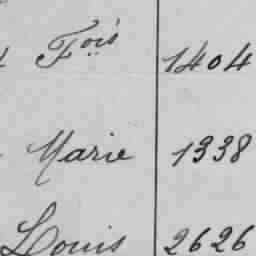 Fois 1404
Marie 1338
Louis 2626